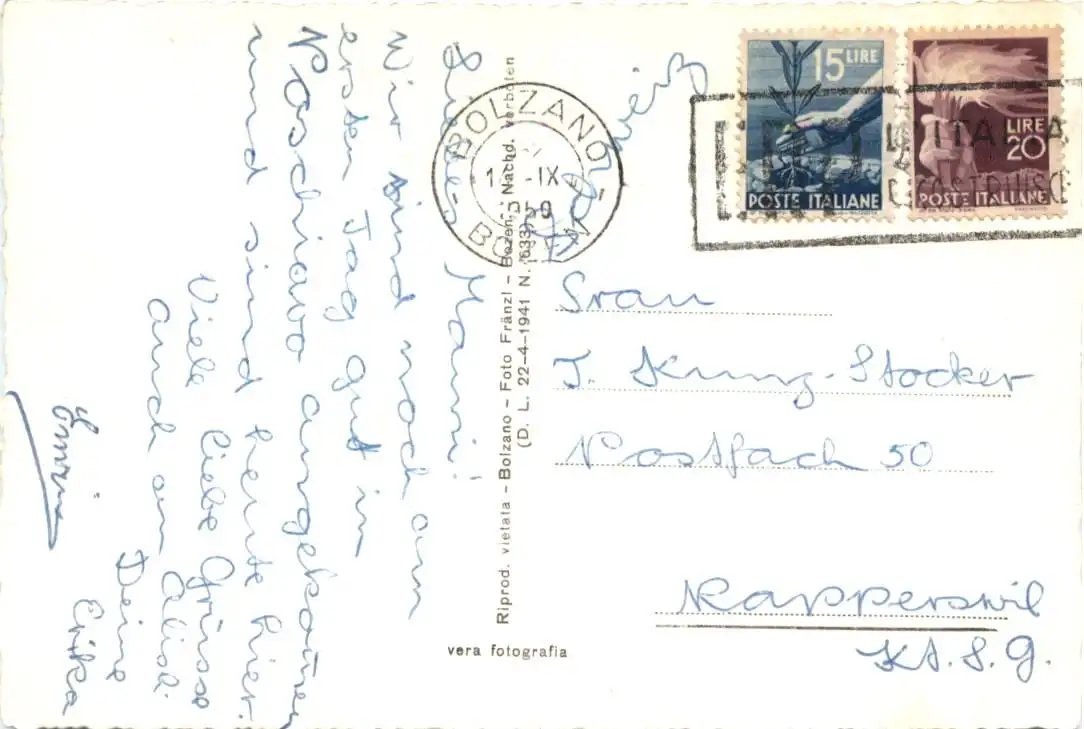 Liebes Mammi!
Wir sind noch am
ersten Tag gut in
Poschiavo angekommen
und sind heute hier.
Viele liebe Grüsse
auch an Alisi
Deine
Erika
Riprod. vietata - Bolzano - Foto Fränzl - Bozen - Nachd. verboten
(D. L. 22-4-1941 N. 633)
vera fotografia
BOLZANO
-IX
15 LIRE
POSTE ITALIANE
LIRE
20
POSTE ITALIANE
L'ITALIA
RICOSTRUISCE
Schweiz
Frau
J. Kunz-Stocker
Postfach 50
Rapperswil
Kt. S. G.